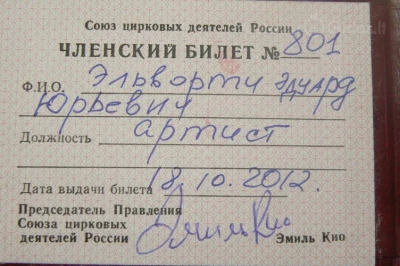 Союз цирковых деятелей России
ЧЛЕНСКИЙ БИЛЕТ № 801
Ф.И.О. Эльворти Эдуард
Юрьевич
Должность артист
Дата выдачи билета 18.10.2012.
Председатель Правления
Союза цирковых
деятелей России Эмиль Кио